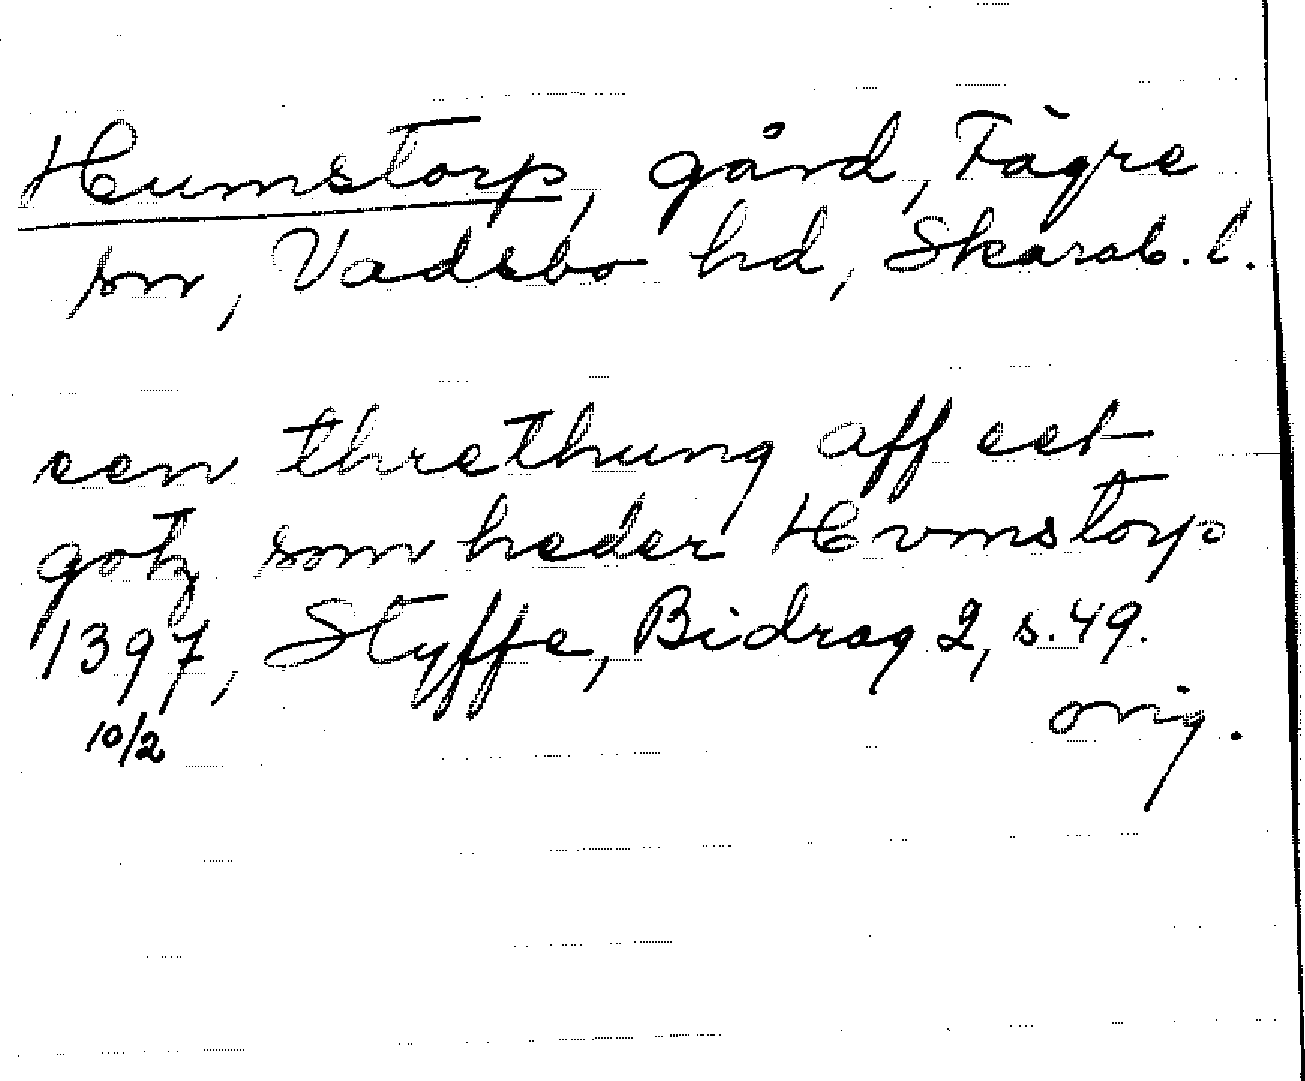 Humstorp, gård, Fägre
sn, Vadsbo hd, Skarab. l.
een threthung aff eet
gotz som heder Hvmstorp
1397, Styffe, Bidrag 2, s. 49.
10/2 orig.